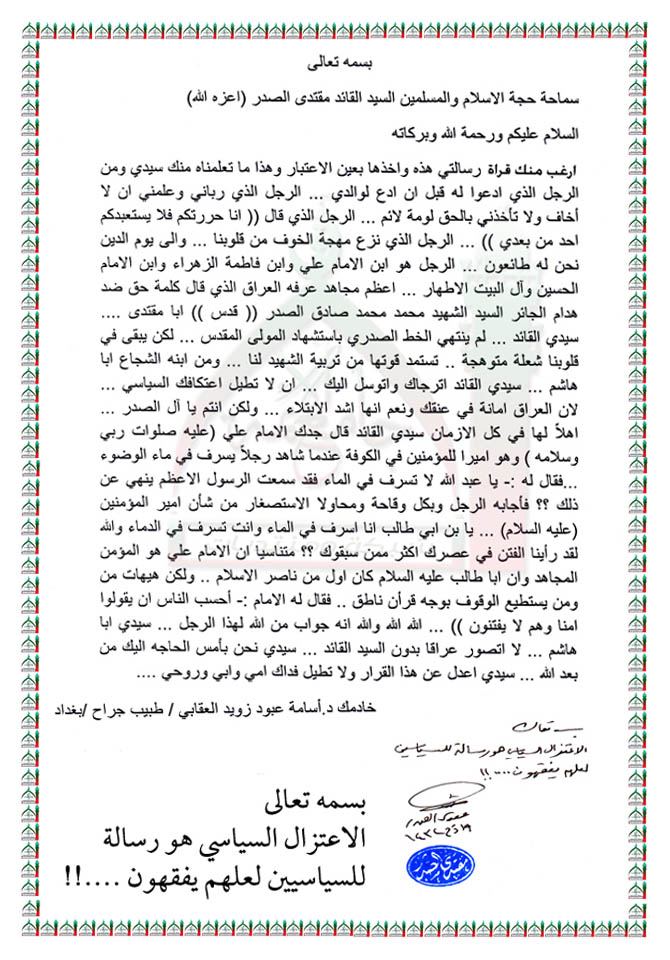 بسمه تعالى
سماحة حجة الاسلام والمسلمين السيد القائد مقتدى الصدر (اعزه الله)
السلام عليكم ورحمة الله وبركاته
ارغب منك قراة رسالتي هذه واخذها بعين الاعتبار وهذا ما تعلمناه منك سيدي ومن
الرجل الذي ادعوا له قبل ان ادع لوالدي ... الرجل الذي رباني وعلمني ان لا
أخاف ولا تأخذني بالحق لومة لائم ... الرجل الذي قال (( انا حررتكم فلا يستعبدكم
احد من بعدي )) ... الرجل الذي نزع مهجة الخوف من قلوبنا ... والى يوم الدين
نحن له طائعون ... الرجل هو ابن الامام علي وابن فاطمة الزهراء وابن الامام
الحسين وآل البيت الاطهار ... اعظم مجاهد عرفه العراق الذي قال كلمة حق ضد
هدام الجائر السيد الشهيد محمد محمد صادق الصدر (( قدس )) ابا مقتدى ....
سيدي القائد ... لم ينتهي الخط الصدري باستشهاد المولى المقدس ... لكن يبقى في
قلوبنا شعلة متوهجة .. تستمد قوتها من تربية الشهيد لنا ... ومن ابنه الشجاع ابا
هاشم ... سيدي القائد اترجاك واتوسل اليك ... ان لا تطيل اعتكافك السياسي ...
لان العراق امانة في عنقك ونعم انها اشد الابتلاء ... ولكن انتم يا آل الصدر ...
اهلاً لها في كل الازمان سيدي القائد قال جدك الامام علي (عليه صلوات ربي
وسلامه ) وهو اميرا للمؤمنين في الكوفة عندما شاهد رجلاً يسرف في ماء الوضوء
...فقال له :- يا عبد الله لا تسرف في الماء فقد سمعت الرسول الاعظم ينهي عن
ذلك ؟؟ فأجابه الرجل وبكل وقاحة ومحاولا الاستصغار من شأن امير المؤمنين
(عليه السلام) ... يا بن ابي طالب انا اسرف في الماء وانت تسرف في الدماء والله
لقد رأينا الفتن في عصرك اكثر ممن سبقوك ؟؟ متناسيا ان الامام علي هو المؤمن
المجاهد وان ابا طالب عليه السلام كان اول من ناصر الاسلام .. ولكن هيهات من
ومن يستطيع الوقوف بوجه قرأن ناطق .. فقال له الامام :- أحسب الناس ان يقولوا
امنا وهم لا يفتنون )) ... الله الله والله انه جواب من الله لهذا الرجل ... سيدي ابا
هاشم ... لا اتصور عراقا بدون السيد القائد ... سيدي نحن بأمس الحاجه اليك من
بعد الله ... سيدي اعدل عن هذا القرار ولا تطيل فداك امي وابي وروحي ....
خادمك د.أسامة عبود زويد العقابي / طبيب جراح /بغداد
بسمه تعالى
الاعتزال السياسي هو رسالة للسياسيين
لعلهم يفقهون ....!!
مقتدى الصدر
مقتدى الصدر
بسمه تعالى
الاعتزال السياسي هو رسالة
للسياسيين لعلهم يفقهون ....!!